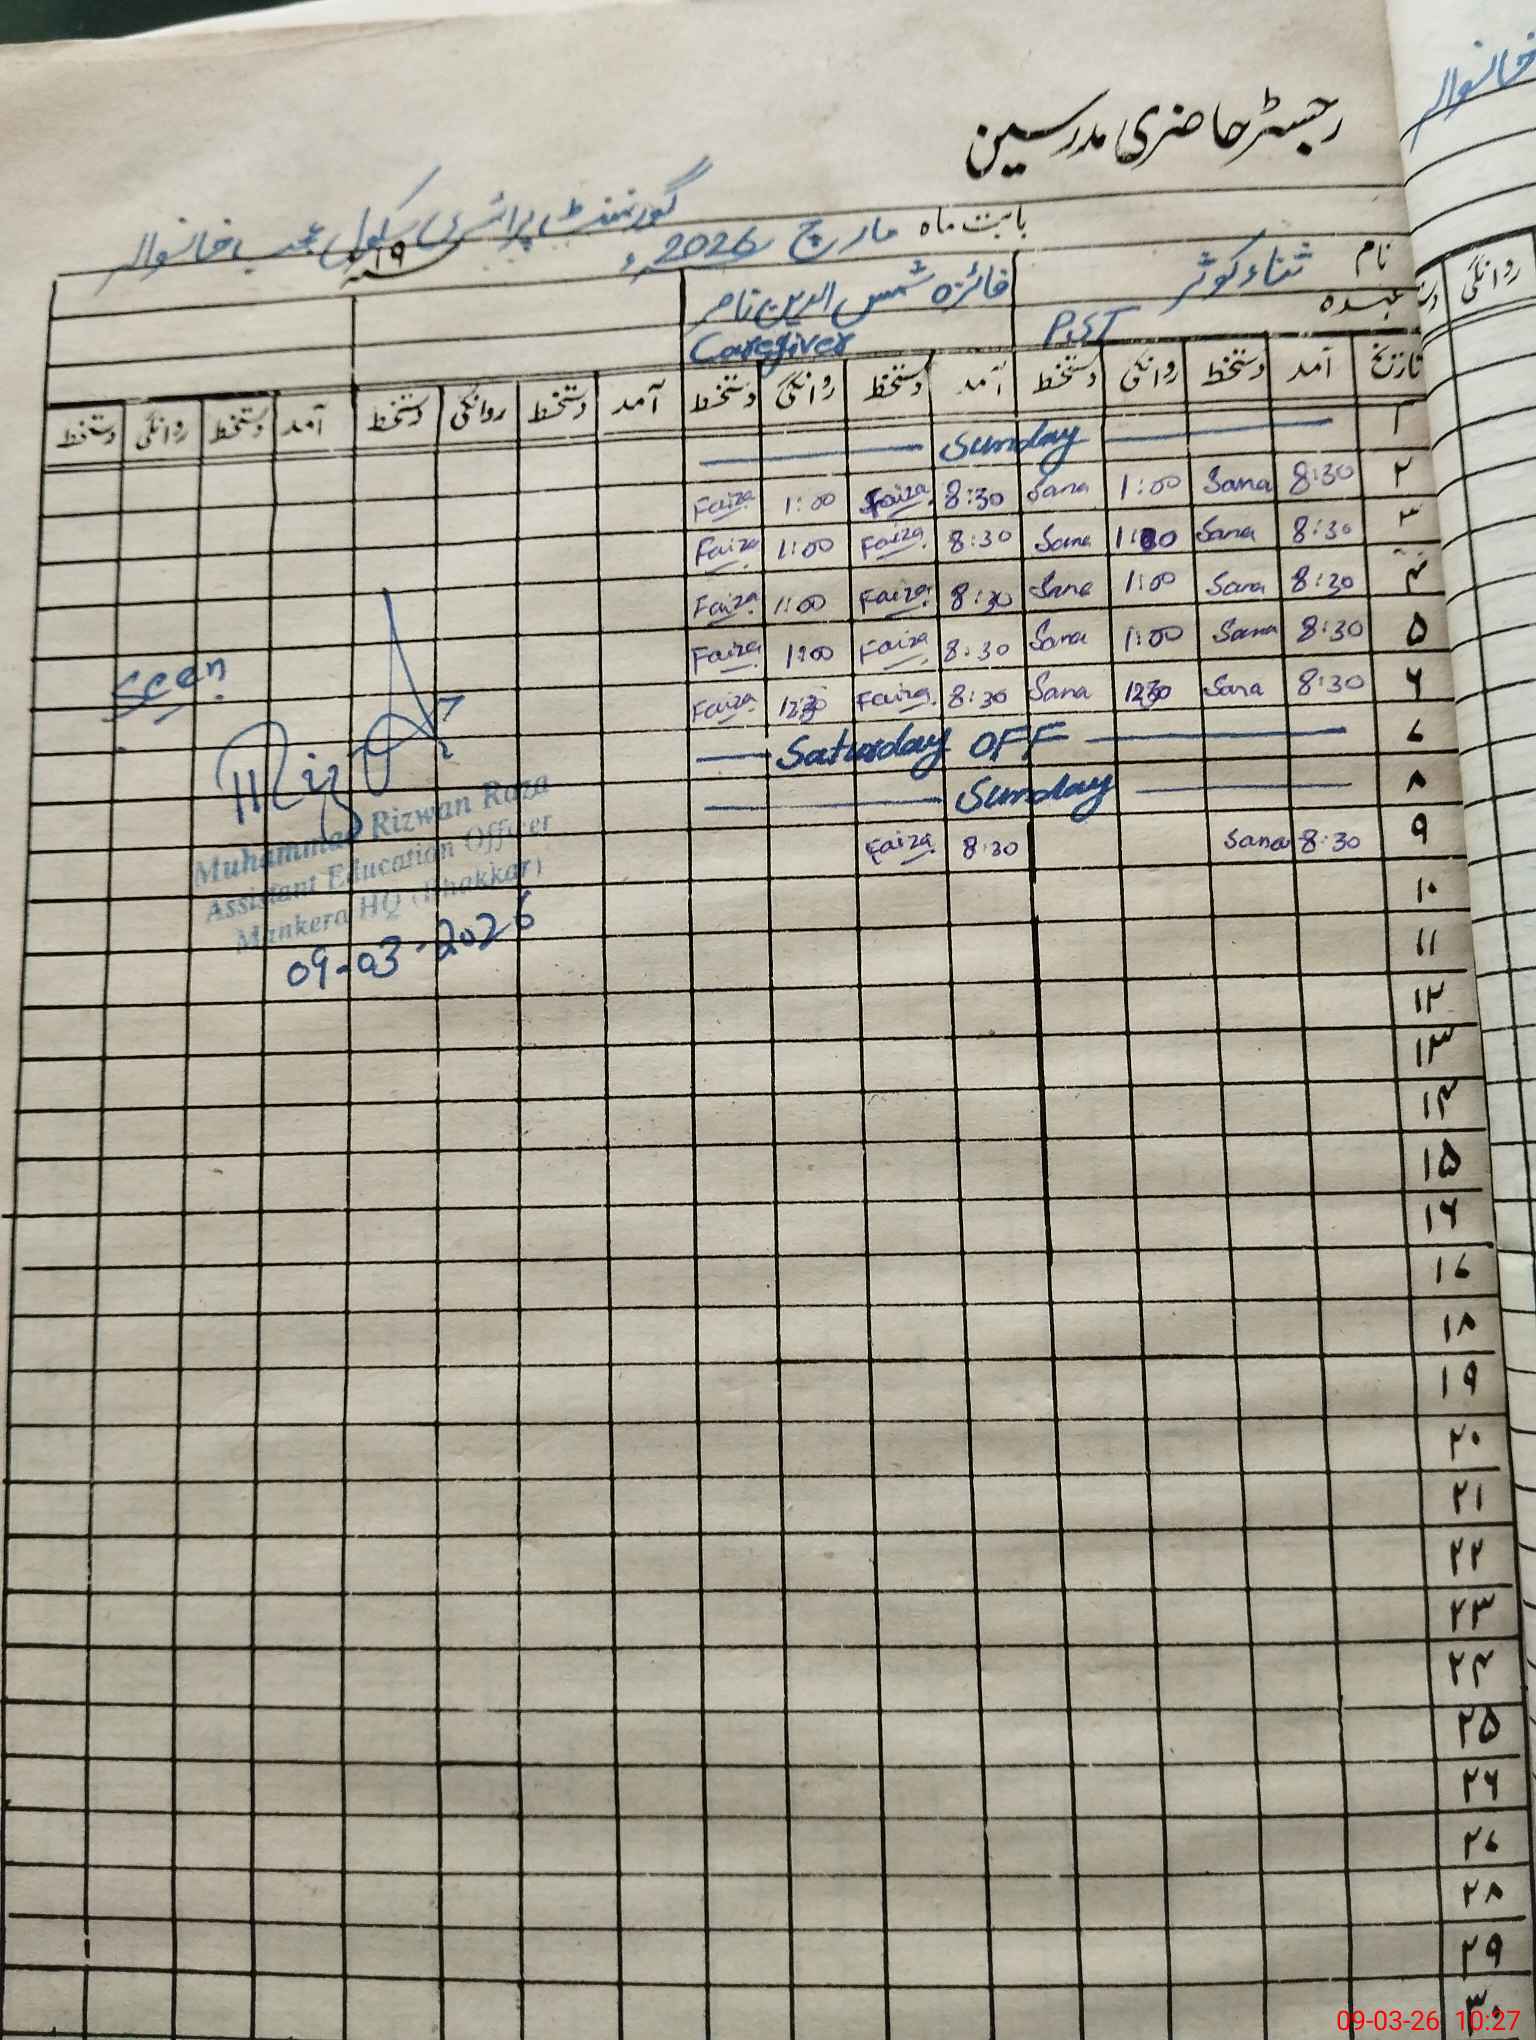 خانسوالہ
رجسٹر حاضری مدرسین
بابت ماہ مارچ 2026ء ۱۹ گورنمنٹ پرائمری سکول خانسوالہ
نام ثناء کوثر فائزہ شمس الدین ناصر
عہدہ PST Caregiver
روانگی
تاریخ آمد دستخط روانگی دستخط آمد دستخط روانگی دستخط آمد دستخط روانگی دستخط آمد دستخط روانگی دستخط
۱ Sunday
۲ 8:30 Sana 1:00 Sana 8:30 Faiza 1:00 Faiza
۳ 8:30 Sana 1:00 Sana 8:30 Faiza 1:00 Faiza
۴ 8:30 Sana 1:00 Sana 8:30 Faiza 1:00 Faiza
۵ 8:30 Sana 1:00 Sana 8:30 Faiza 1:00 Faiza
۶ 8:30 Sana 12:30 Sana 8:30 Faiza 12:30 Faiza
۷ Saturday OFF
۸ Sunday
۹ 8:30 Sana 8:30 Faiza
Seen
Muhammad Rizwan Raza
Assistant Education Officer
Mankera HQ (Bhakkar)
09-03-2026
۱۰
۱۱
۱۲
۱۳
۱۴
۱۵
۱۶
۱۷
۱۸
۱۹
۲۰
۲۱
۲۲
۲۳
۲۴
۲۵
۲۶
۲۷
۲۸
۲۹
۳۰
09-03-26 10:27